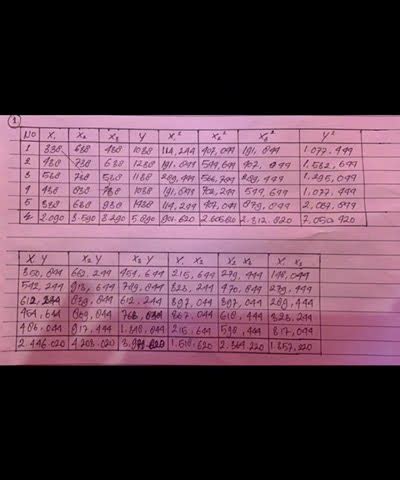 1
No X₁ X₂ X₃ Y X₁² X₂² X₃² Y²
1 338 638 438 1038 114,244 407,044 191,844 1.077,444
2 438 738 638 1238 191,844 544,644 407,044 1.532,644
3 538 738 538 1138 289,444 289,444 1.295,044
4 438 838 738 1038 191,844 702,244 544,644 1.077,444
5 338 638 938 1438 114,244 407,044 879,844 2.067,844
Σ 2.090 3.590 3.290 5.890 901.620 2.605.620 2.312.820 7.050.420
X₁Y X₂Y X₃Y X₁X₂ X₂X₃ X₁X₃
350,844 662,244 454,644 215,644 279,444 148,044
542,244 913,644 789,844 323,244 470,844 279,444
612,244 839,844 612,244 397,044 397,044 289,444
454,644 869,844 367,044 618,444 323,244
486,044 917,444 1.348,844 215,644 598,444 317,044
2.446.020 4.203.020 1.518,620 2.364.220 1.357,220